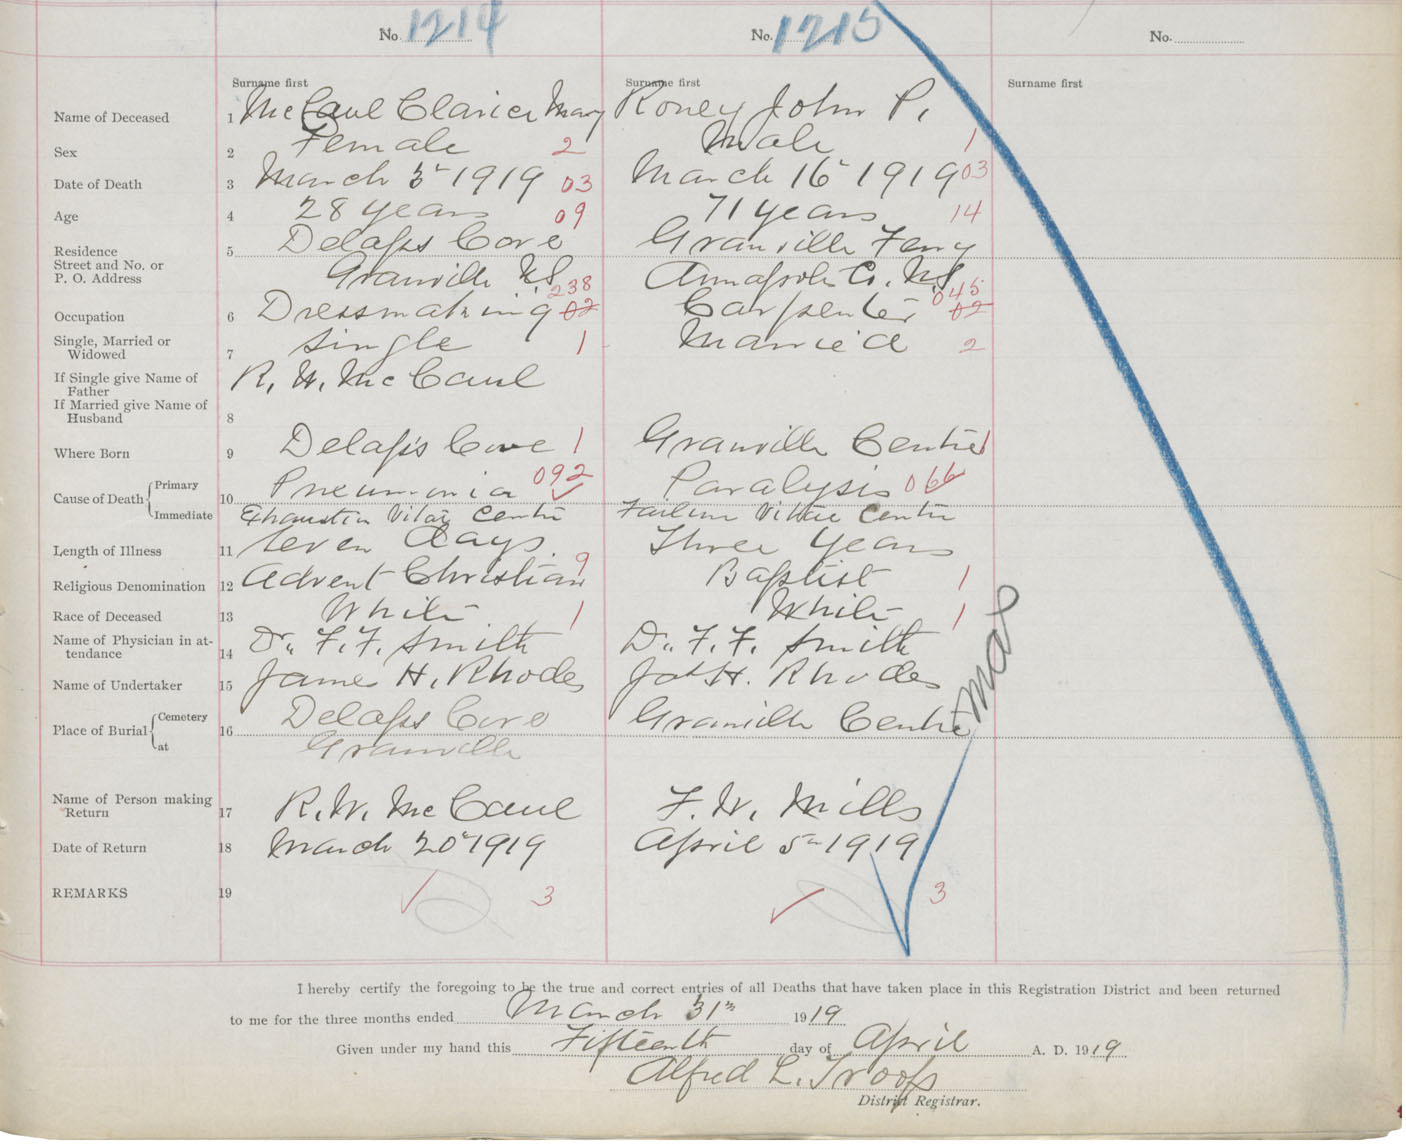 No. 1214 No. 1215 No.
Surname first Surname first Surname first
Name of Deceased 1 McCaul Clarice Mary Roney John P.
Sex 2 Female 2 Male 1
Date of Death 3 March 1919 03 March 16th 1919 03
Age 4 28 years 09 71 years 14
Residence 5 Delaps Cove Granville Ferry
Street and No. or
P. O. Address Granville N.S. Annapolis Co. N.S.
238 045
Occupation 6 Dressmaking 02 Carpenter 02
Single, Married or
Widowed 7 Single 1 Married 2
If Single give Name of
Father R. W. McCaul
If Married give Name of
Husband 8
Where Born 9 Delaps Cove 1 Granville Centre 1
Cause of Death Primary 10 Pneumonia 092 Paralysis 066
Immediate Exhaustion Vitae Centre Failure Vitae Centre
Length of Illness 11 Seven days. Three Years
Religious Denomination 12 Advent Christian 9 Baptist 1
Race of Deceased 13 White 1 White 1
Name of Physician in at-
tendance 14 Dr. F. F. Smith Dr. F. F. Smith
Name of Undertaker 15 James H. Rhodes Jas H. Rhodes
Place of Burial Cemetery 16 Delaps Cove Granville Centre
at Granville
Mar
Name of Person making
Return 17 R. W. McCaul F. W. Mills
Date of Return 18 March 20th 1919 April 5th 1919
REMARKS 19 3 3
I hereby certify the foregoing to be the true and correct entries of all Deaths that have taken place in this Registration District and been returned
to me for the three months ended March 31st 1919
Given under my hand this Fifteenth day of April A. D. 1919
Alfred L. Troop
District Registrar.